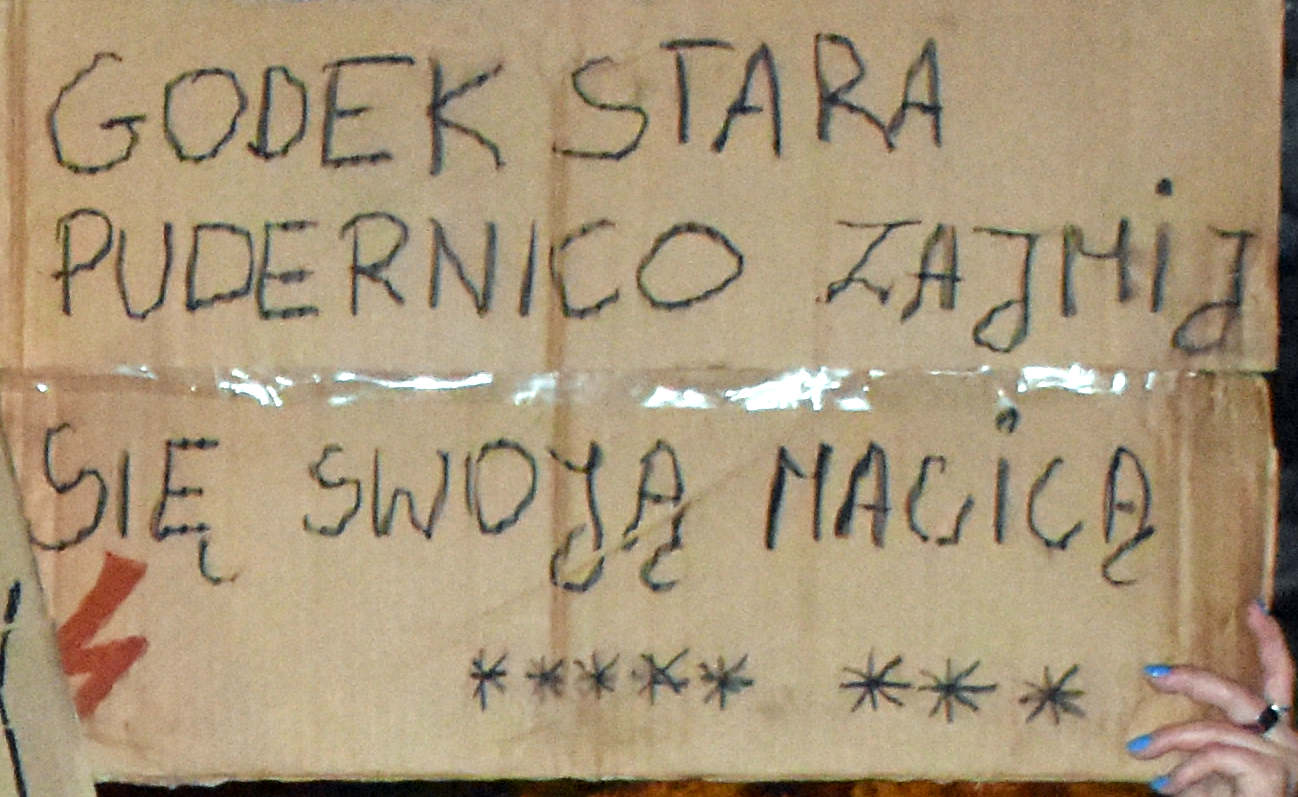 GODEK STARA
PUDERNICO ZAJMIJ
SIĘ SWOJĄ MACICĄ
***** ***